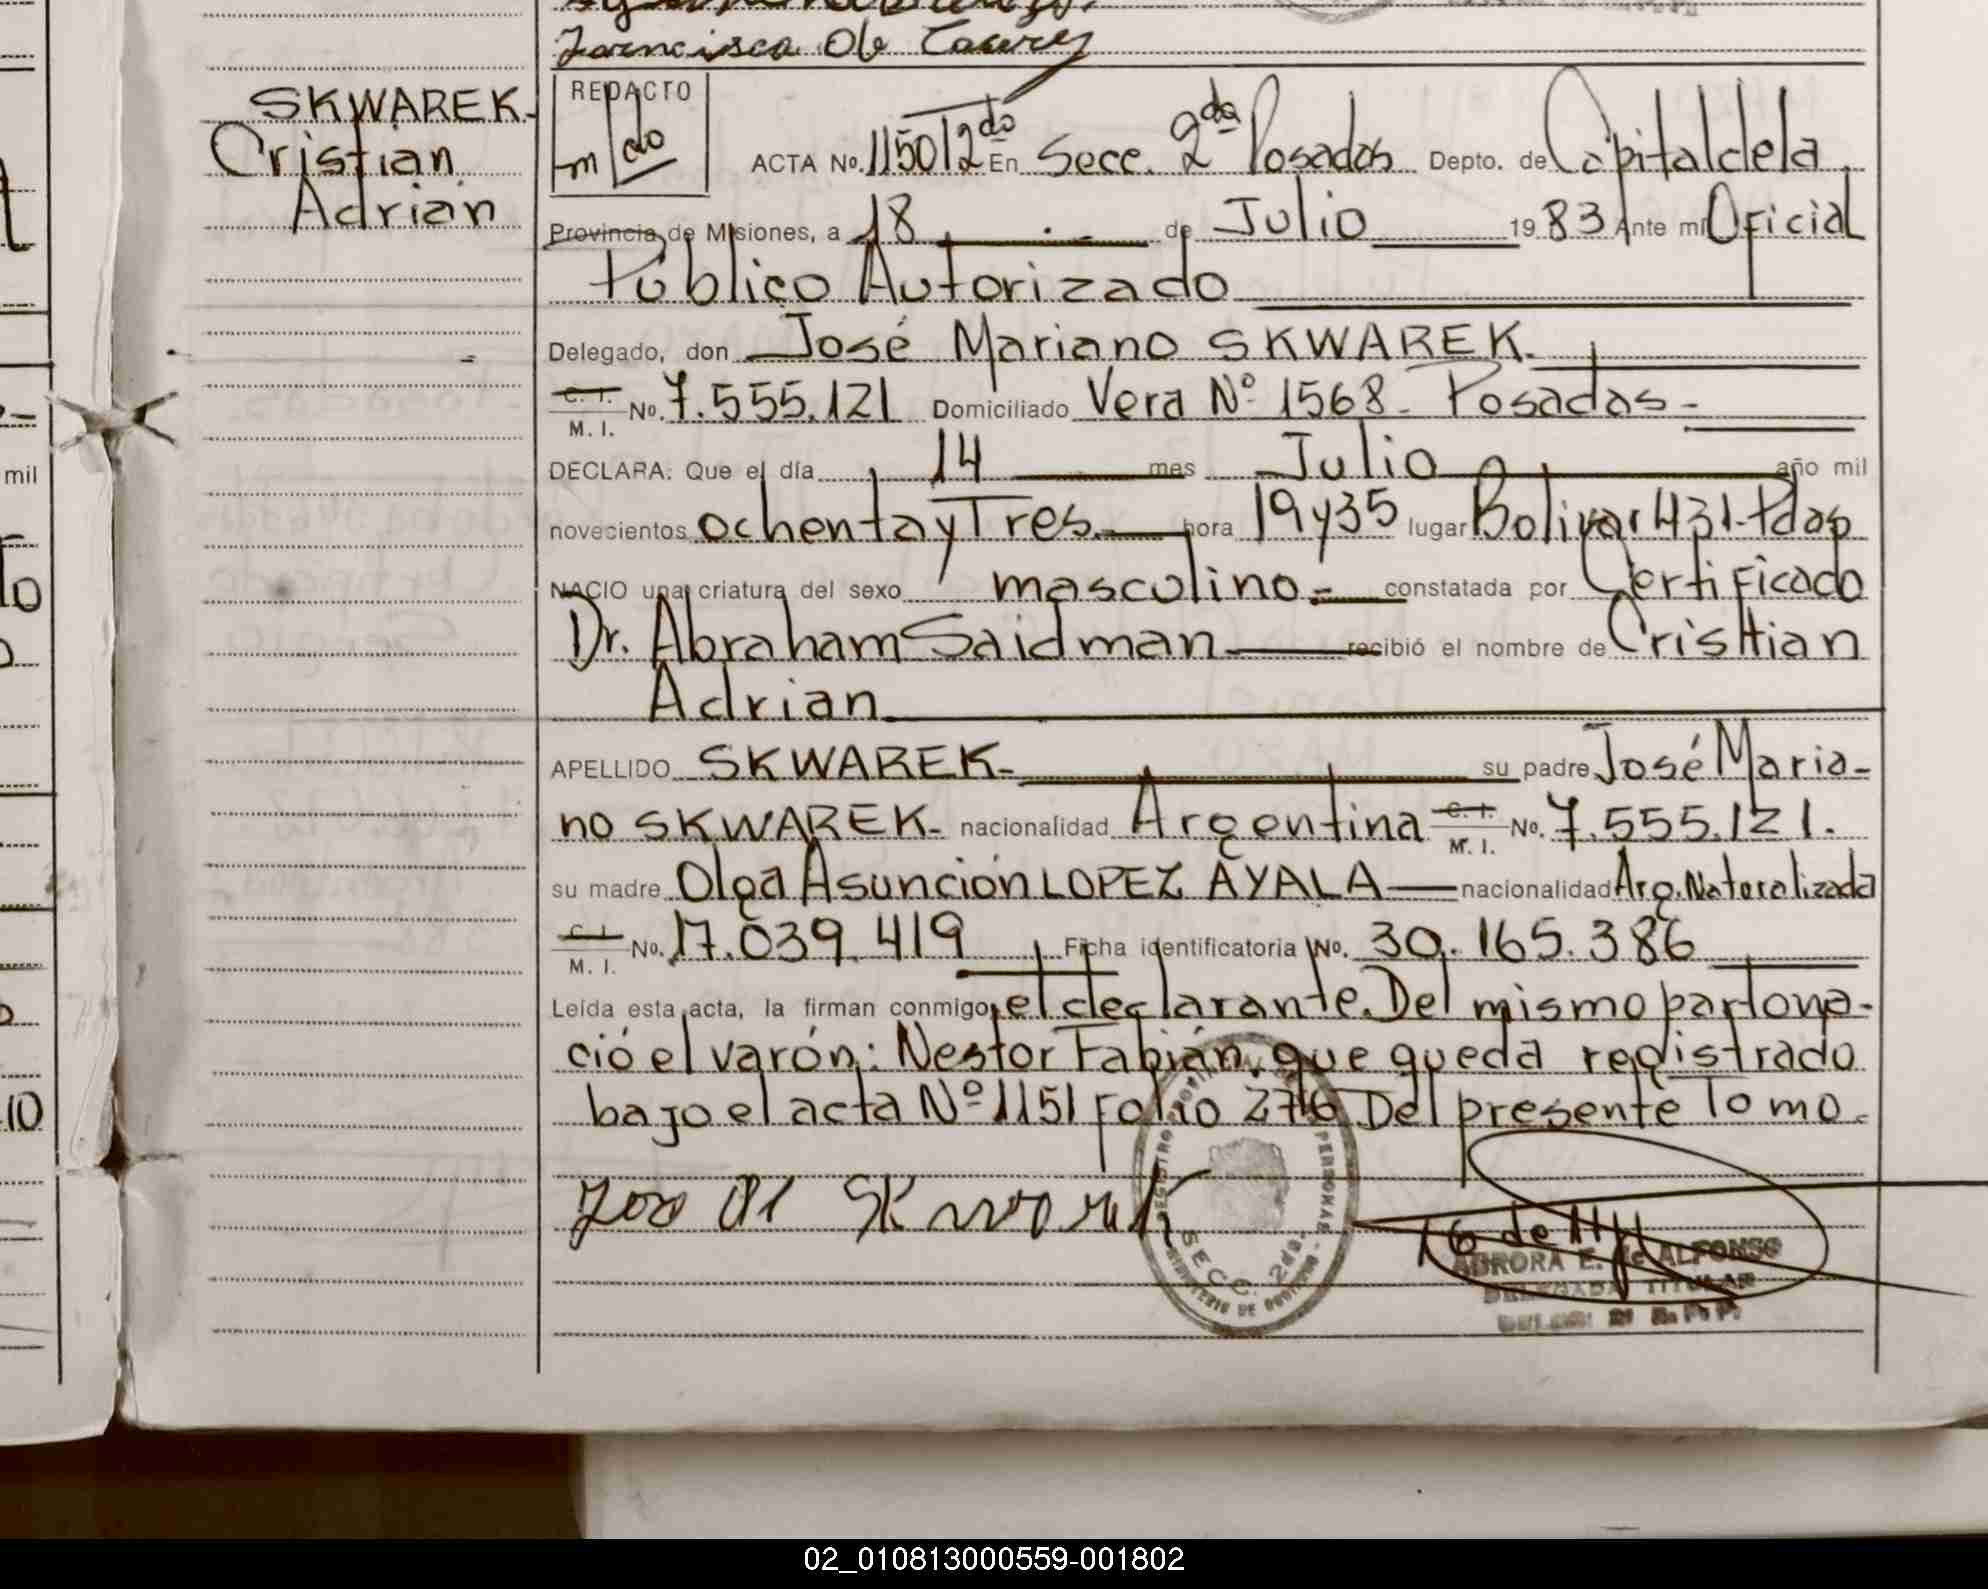 SKWAREK.
Cristian
Adrian
REDACTO
ACTA No. 1150 T 2do En Secc. 2da Posadas Depto. de Capital de la
Provincia de Misiones, a 18 de Julio 1983 Ante mí Oficial
Público Autorizado
Delegado, don José Mariano SKWAREK.
C. I. M. I. No. 7.555.121 Domiciliado Vera Nº 1568 - Posadas -
DECLARA: Que el día 14 mes Julio año mil
novecientos ochenta y Tres. hora 19 y 35 lugar Bolivar 431. Pdas
NACIO una criatura del sexo masculino.= constatada por Certificado
Dr. Abraham Saidman recibió el nombre de Cristian
Adrian
APELLIDO SKWAREK- su padre José Maria-
no SKWAREK- nacionalidad Argentina C. I. M. I. No. 7.555.121.
su madre Olga Asunción LOPEZ AYALA nacionalidad Arg. Naturalizada
C. I. M. I. No. 17.039.419 Ficha identificatoria No. 30.165.386
Leída esta acta, la firman conmigo, el declarante. Del mismo parto na-
ció el varón: Nestor Fabián, que queda registrado
bajo el acta Nº 1151 Folio 276 Del presente Tomo.
SECC. 2da.
AURORA E. de ALFONSO
DELEGADA TITULAR
mil
10
02_010813000559-001802